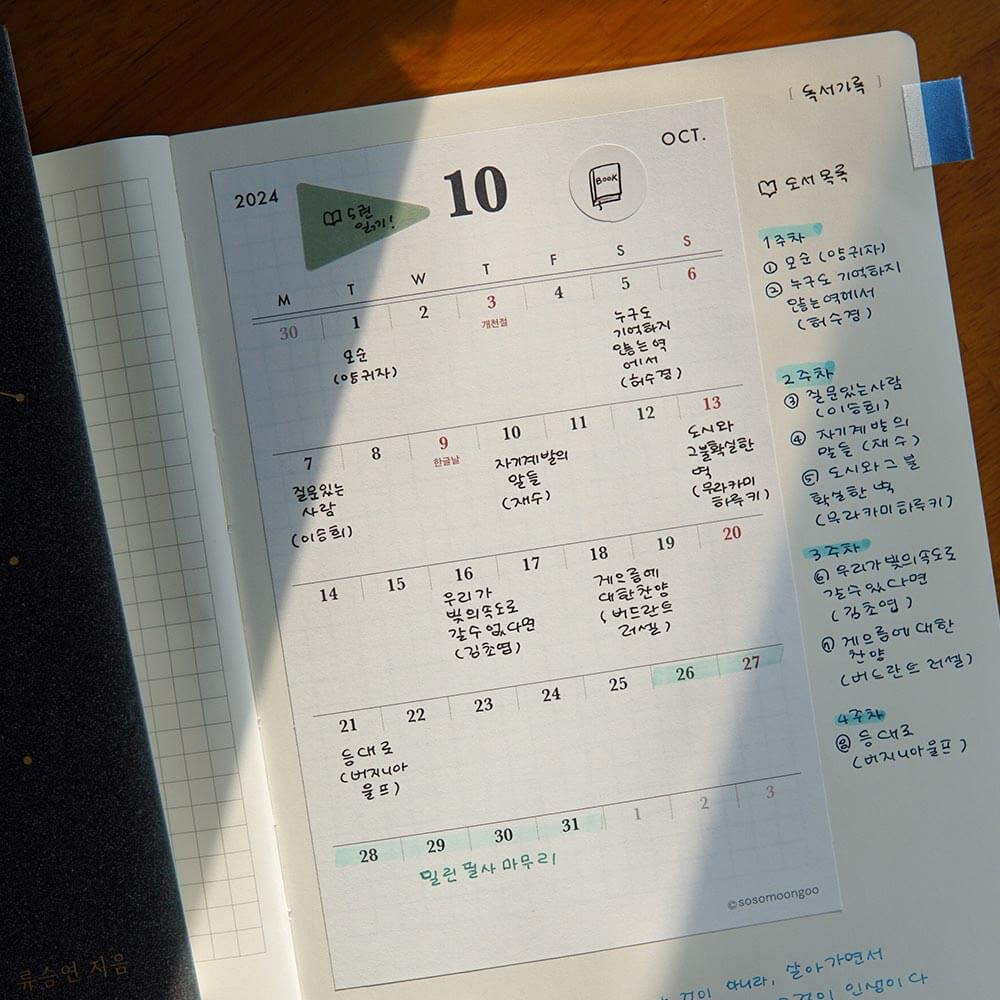 [ 독서기록 ]
2024
5권
읽기!
10
BOOK
OCT.
M T W T F S S
30 1 2 3 4 5 6
개천절
모순
(양귀자)
누구도
기억하지
않는 역
에서
(허수경)
7 8 9 10 11 12 13
한글날
질문있는
사람
(이승희)
자기계발의
말들
(재수)
도시와
그불확실한
벽
(무라카미
하루키)
14 15 16 17 18 19 20
우리가
빛의속도로
갈수없다면
(김초엽)
게으름에
대한찬양
(버드란트
러셀)
21 22 23 24 25 26 27
등대로
(버지니아
울프)
28 29 30 31 1 2 3
밀린 필사 마무리
©sosomoongoo
도서목록
1주차
① 모순 (양귀자)
② 누구도 기억하지
않는역에서
(허수경)
2주차
③ 질문있는사람
(이승희)
④ 자기계발의
말들 (재수)
⑤ 도시와 그 불
확실한 벽
(무라카미하루키)
3주차
⑥ 우리가 빛의속도로
갈수있다면
(김초엽)
⑦ 게으름에 대한
찬양
(버드란트 러셀)
4주차
⑧ 등대로
(버지니아울프)
아니라, 살아가면서
인생이다
류승연 지음